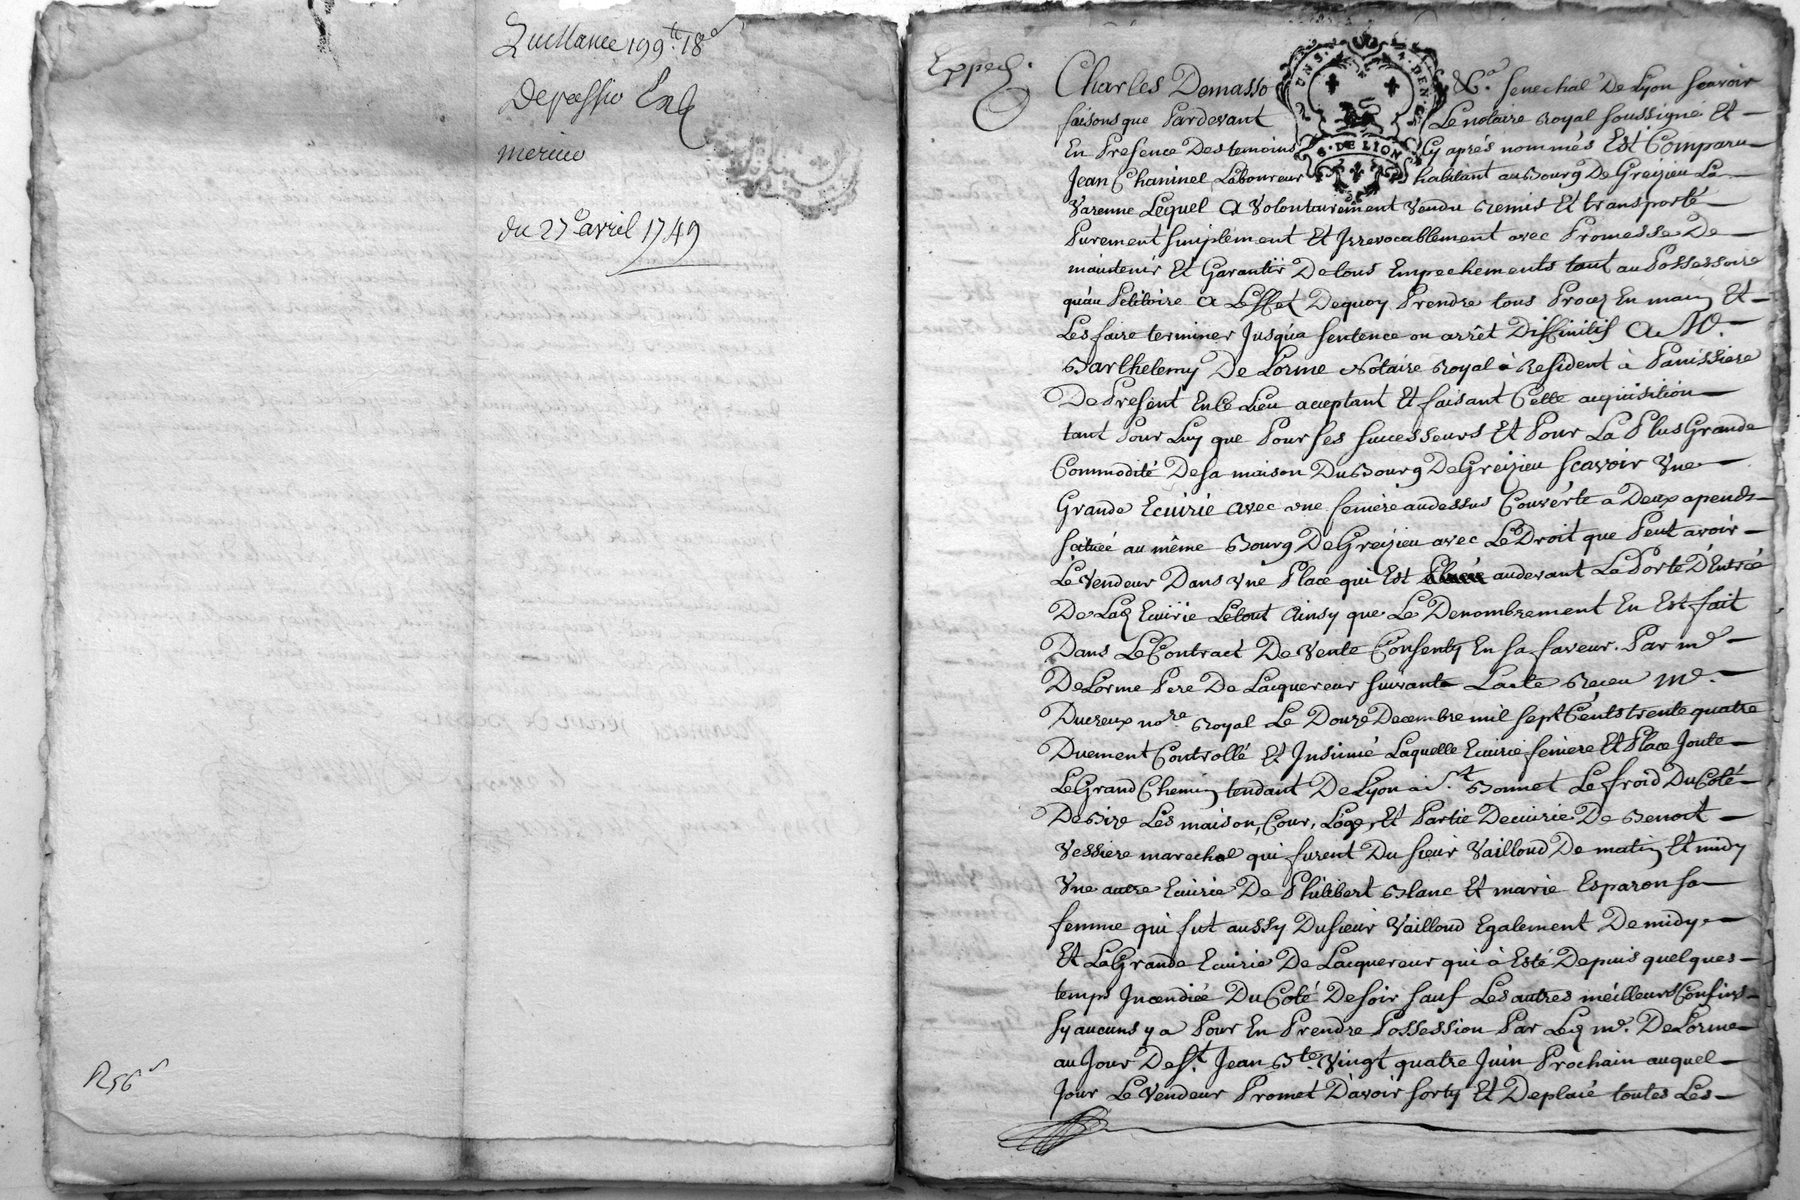 Quittance 199ᵗᵗ 18ˢ
merino
du 27e avril 1749
R 56ˢ
Exped.
Charles Demasso &ª. Senechal De Lyon Scavoir
faisons que Pardevant Le notaire Royal soussigné Et
En Presence Des temoins Cy aprés nommés Est Comparu
Jean Chaninel Laboureur habitant au Bourg De Greizieu La
Varenne Lequel a Volontairement Vendu Remis Et transporté
Purement Simplement Et Irrevocablement avec Promesse De
maintenir Et Garantir De tous Empechements tant au Possessoire
qu'au Petitoire a L'effet Dequoy Prendre tous Procez En main Et
Les faire terminer Jusqu'a Sentence ou arrêt Diffinitif a Me.
Barthelemy De Lorme Notaire Royal à Resident à Panissiere
De Present En Ce Lieu acceptant Et faisant Cette acquisition
tant Pour Luy que Pour Ses Successeurs Et Pour La Plus Grande
Commodité De sa maison Du Bourg De Greizieu Scavoir Une
Grande Ecuirie avec une feniere audessus Couverte a Deux apends
Scituée au même Bourg De Greizieu avec Le Droit que Peut avoir
Le Vendeur Dans Une Place qui Est audevant La Porte D'Entrée
De Lad Ecuirie Le tout Ainsy que Le Denombrement En Est fait
Dans Le Contract De Vente Consenty En Sa faveur. Par me
De Lorme Pere De Lacquereur Suivante Lacte Receu Me.
Ducreux nore Royal Le Douze Decembre mil Sept Cents trente quatre
Duement Controllé Et Insinué Laquelle Ecuirie feniere Et Place Joute
Le Grand Chemin tendant De Lyon à St. Bonnet Le froid Du Coté
De Bize Les maison, Cour, Loge, Et Partie Decuirie De Benoit
Vessiere marechal qui furent Du Sieur Vailloud De matin Et midy
Une autre Ecuirie De Philibert Blanc Et marie Esparon Sa
femme qui fut aussy Du Sieur Vailloud Egalement De midy
Et La Grande Ecuirie De Lacquereur qui à Esté Depuis quelques
temps Incendiée Du Coté De Soir Sauf Les autres meilleurs Confins
Sy aucuns y a Pour En Prendre Possession Par Led me. De Lorme
au Jour De St Jean Bte Vingt quatre Juin Prochain auquel
Jour Le Vendeur Promet D'avoir Sorty Et Deplacé toutes Les